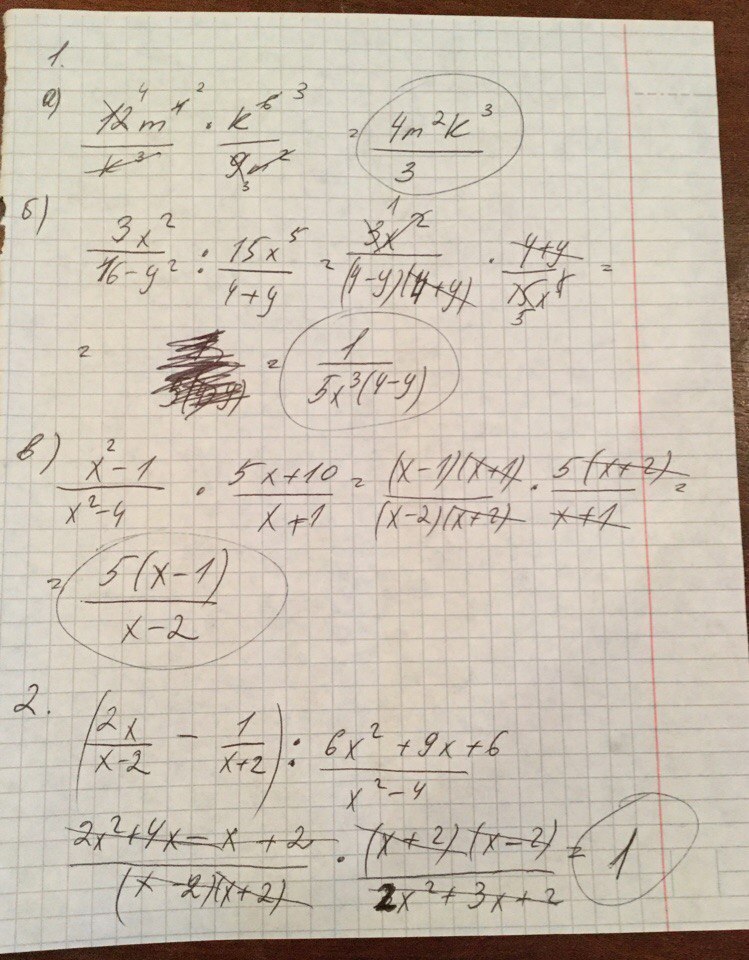 1.
а) 12m^4/k^3 · k^6/9m^2 = 4m^2k^3/3
4 2 3 3
б) 3x^2/16-y^2 : 15x^5/4+y = 3x^2/(4-y)(4+y) · 4+y/15x^5 =
1 5
= = 1/5x^3(4-y)
в) x^2-1/x^2-4 · 5x+10/x+1 = (x-1)(x+1)/(x-2)(x+2) · 5(x+2)/x+1 =
= 5(x-1)/x-2
2. (2x/x-2 - 1/x+2) : 6x^2+9x+6/x^2-4
2x^2+4x-x+2/(x-2)(x+2) · (x+2)(x-2)/2x^2+3x+2 = 1